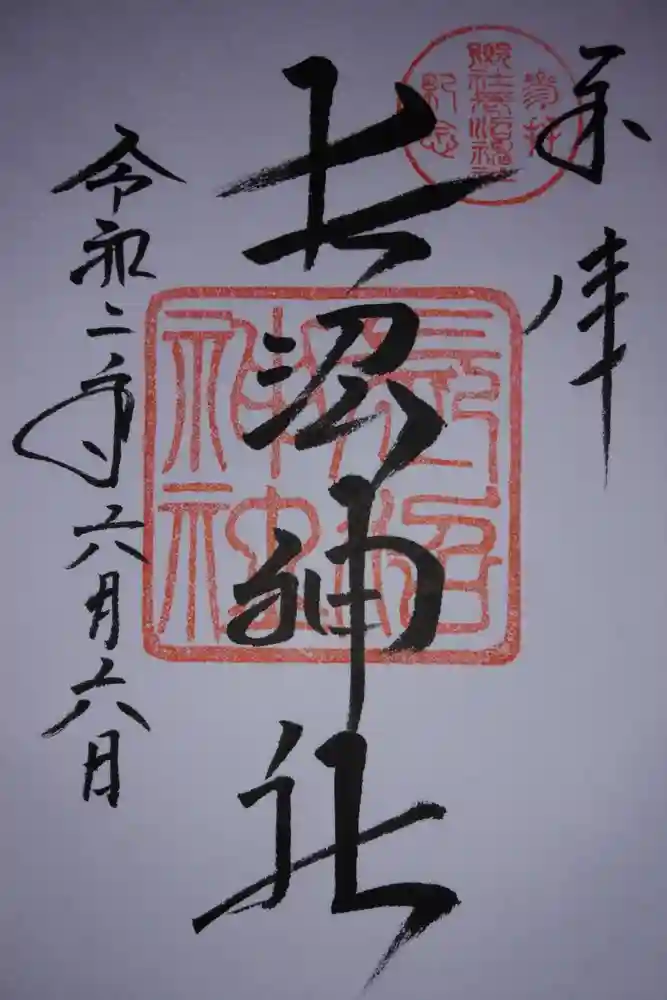 奉拝
長沼神社
令和二年六月六日
長沼
神社